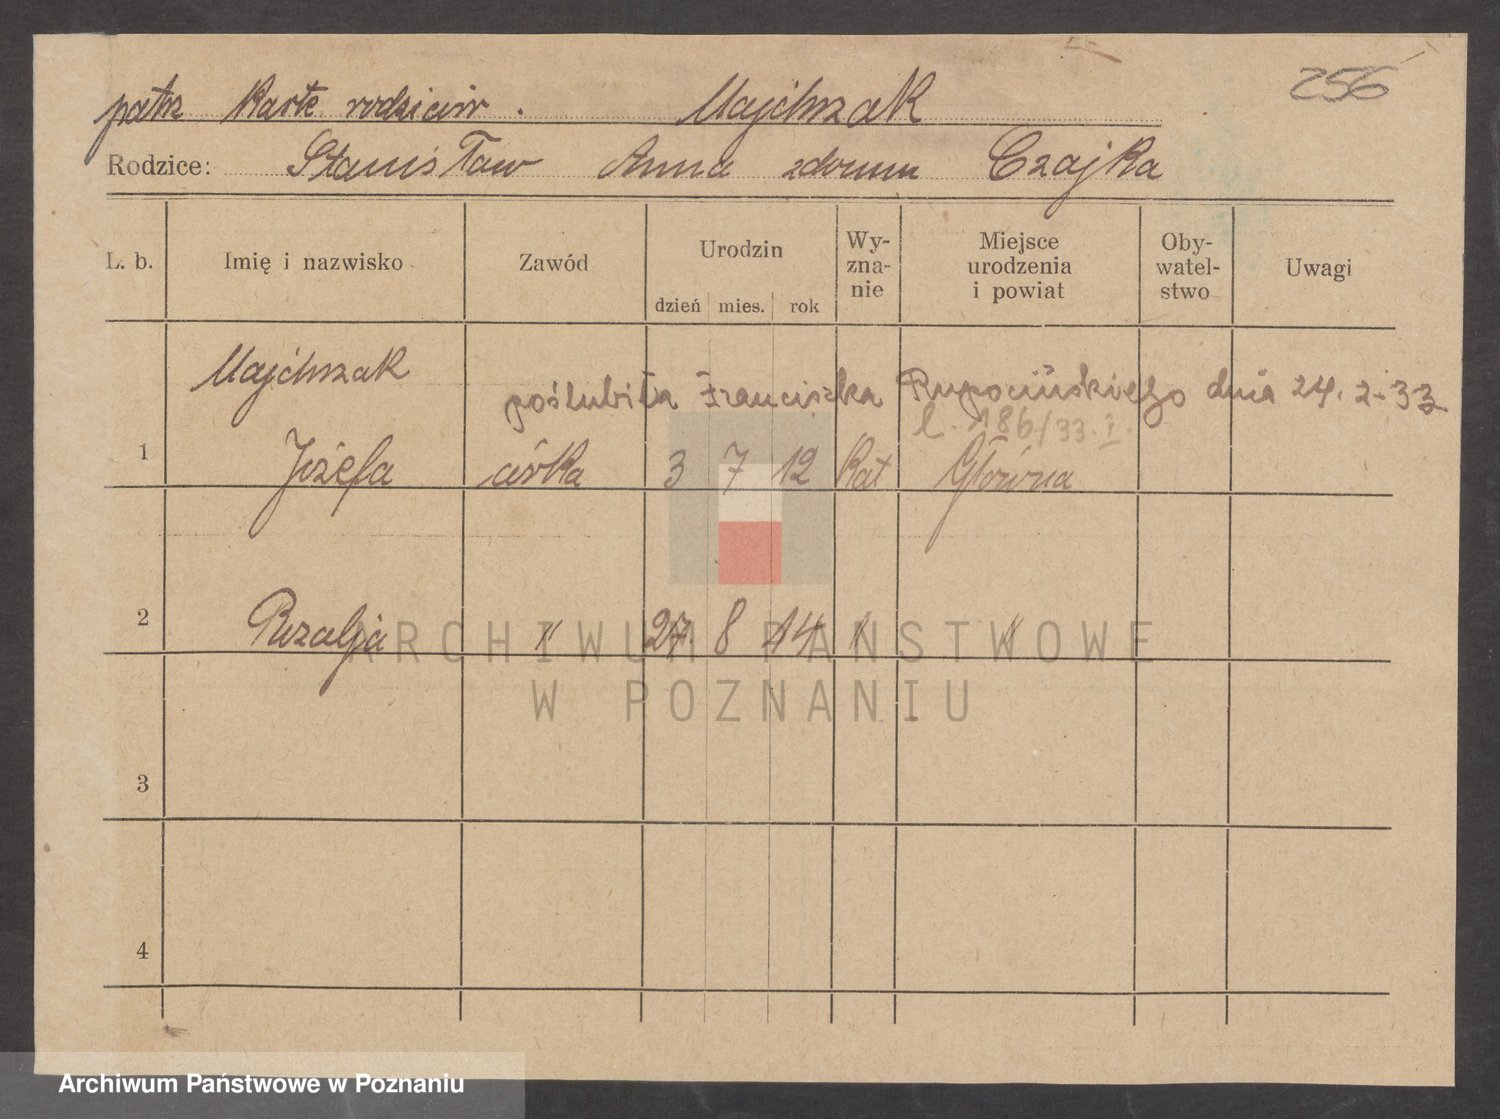 256
patrz Kartę rodziców. Majchrzak
Rodzice: Stanisław Anna zdomu Czajka
L. b. Imię i nazwisko Zawód Urodzin dzień mies. rok Wy-zna-nie Miejsce urodzenia i powiat Oby-watel-stwo Uwagi
Majchrzak
poślubiła Franciszka dnia 24. 2. 33
l. 186/33. I.
1 Józefa córka 3 7 12 Kat Główna
2 Rozalja " 27. 8 14 " "
ARCHIWUM PAŃSTWOWE
W POZNANIU
3
4
Archiwum Państwowe w Poznaniu